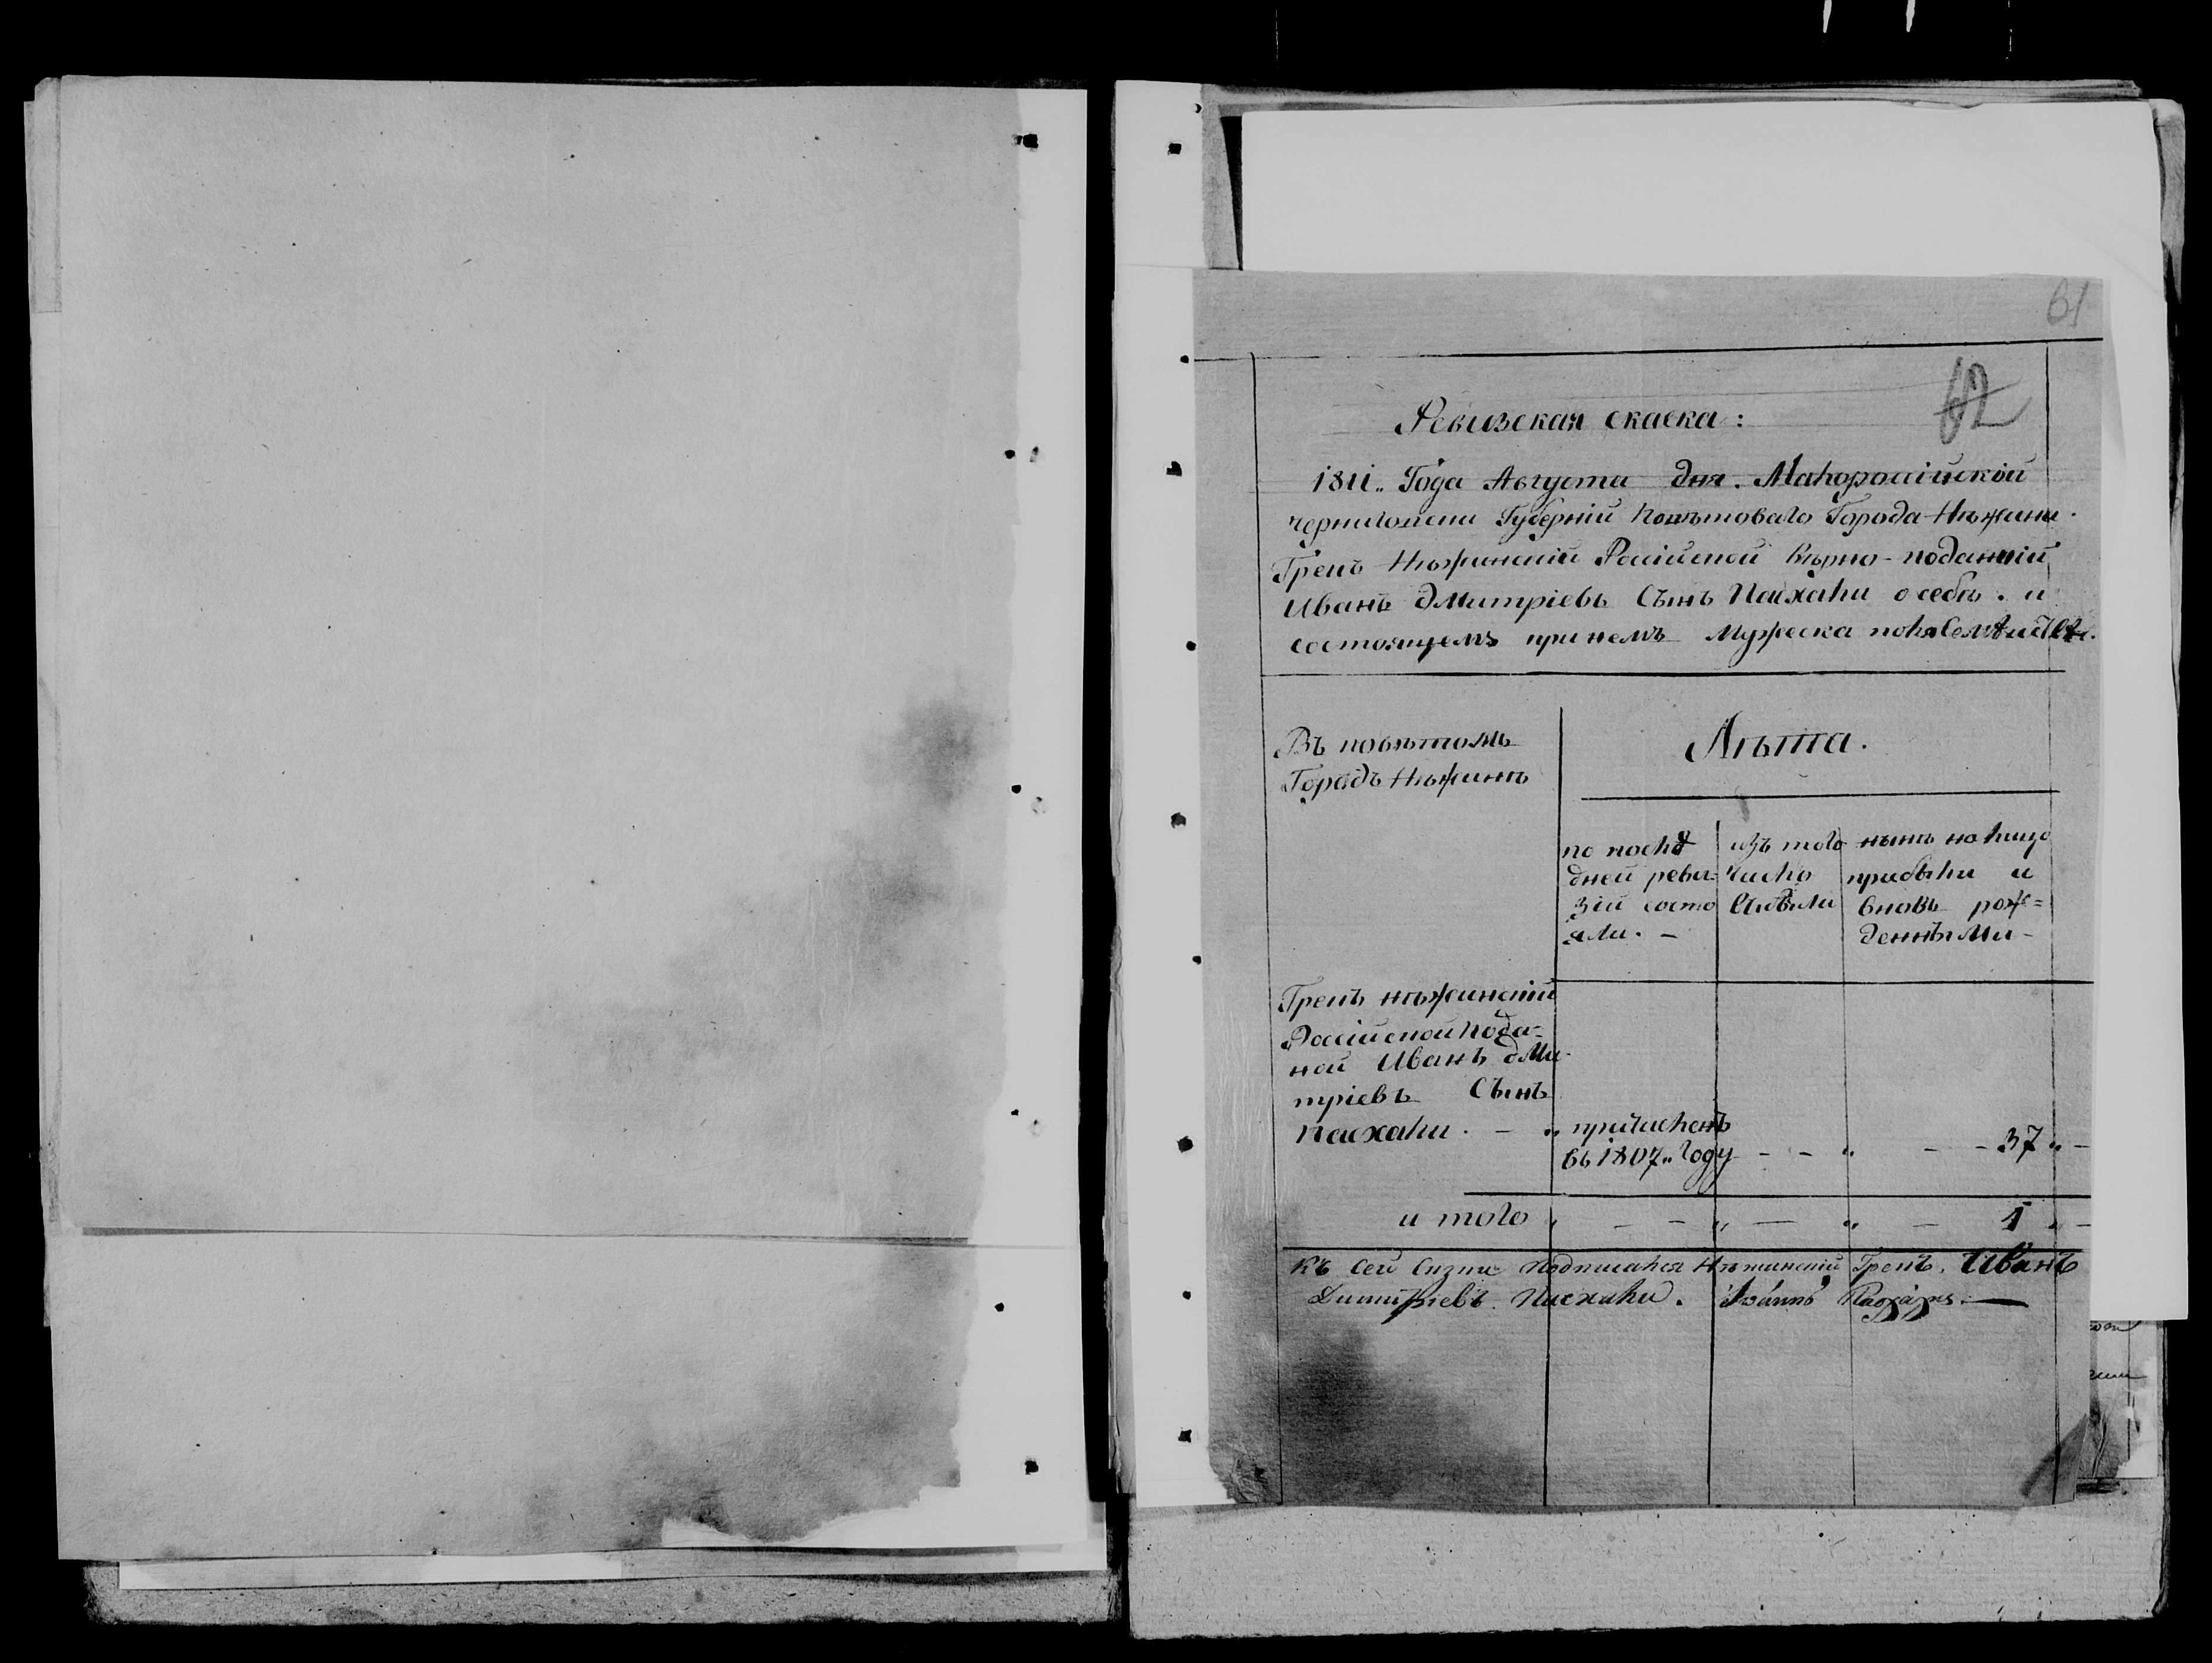 61
62
Ревизская скаска:
1811.. Года Августа дня. Малороссійской
черниговской Губерніи Повѣтоваго Города Нѣжина.
Грекъ Нѣжинскій Россійской вѣрно-поданній
Иванъ дмитріевъ Сынъ Пасхали о себѣ. и
состоящемъ при немъ мужеска пола
Въ повѣтомъ
Городѣ Нѣжинѣ
Лѣта.
по послѣ
дней реви-
зіи состо
яли. -
изъ того
число
выбыли
нынѣ на лицо
прибыли и
вновь рож=
денными -
Грекъ нѣжинскій
Россійской пода-
ной Иванъ дми-
тріевъ Сынъ
Пасхали. - „
причисленъ
въ 1807„ году - - „ - - 37 „ -
и того „ - - „ — „ - 1 „ -
Къ сей скзки подписался Нѣжинскій Грекъ. Иванъ
Димитріевъ Пасхали.